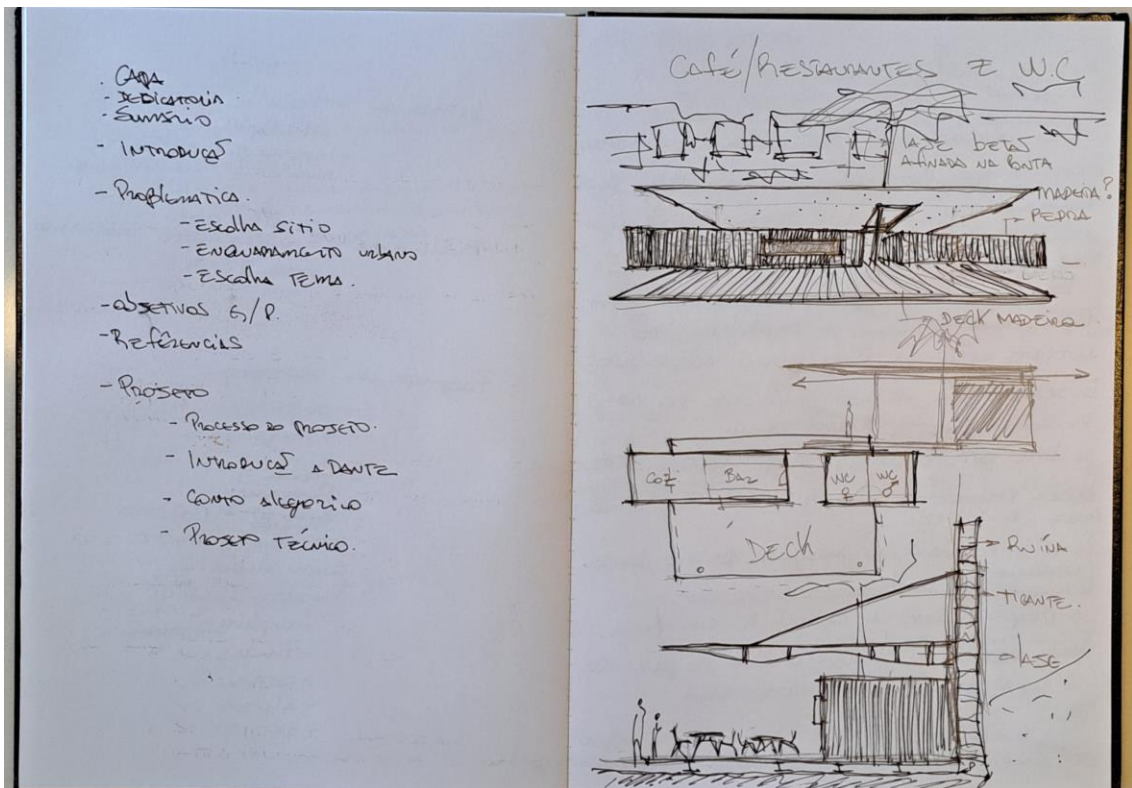 . CAPA
- DEDICATORIA.
- SUMÁRIO
- INTRODUÇÃO
- PROBLEMATICA.
- ESCOLHA SITIO
- ENQUADRAMENTO URBANO
- ESCOLHA TEMA.
- OBJETIVOS G/P.
- REFÊRENCIAS
- PROJETO
- PROCESSO DO PROJETO.
- INTRODUÇÃO A DANTE
- CONTO ALEGORICO
- PROJETO TÉCNICO.
CAFÉ/RESTAURANTES E W.C
LAJE BETÃO
AFINADA NA PONTA
MADEIRA?
PEDRA
DECK MADEIRA
COZ BAR WC WC
DECK
RUÍNA
TIRANTE.
LAJE